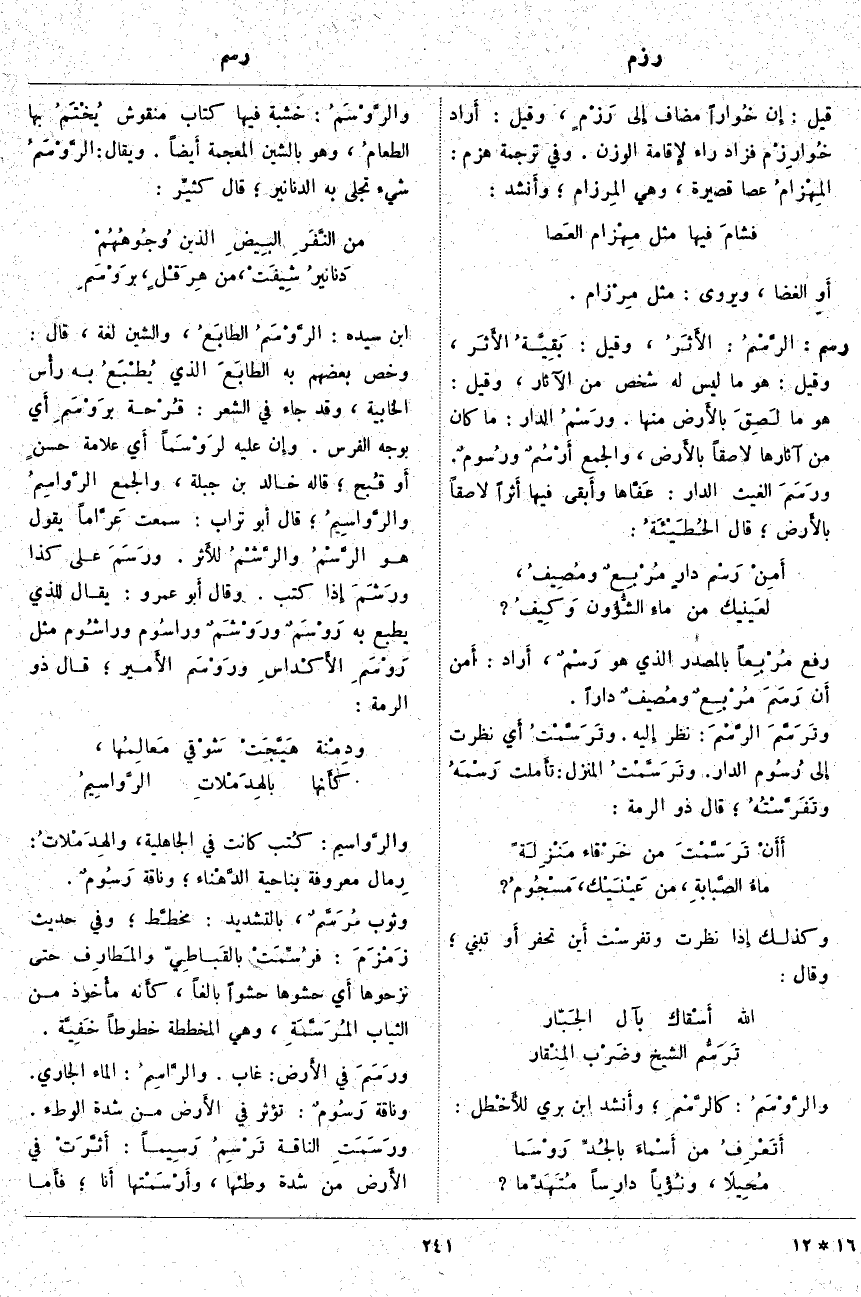 رزم
رسم
قيل : إن خُوارزماً مضاف إلى رَزْمٍ ، وقيل : أَراد
خُوارِزْم فزاد راء لإقامة الوزن . وفي ترجمة هزم :
المِهْزامُ عصا قصيرة ، وهي المِرزام ؛ وأَنشد :
فشامَ فيها مثل مِهْزام العَصا
أَوِ الغضا ، ويروى : مثل مِرْزام .
رسم : الرَّسْمُ : الأَثَرُ ، وقيل : بَقِيَّةُ الأَثَر ،
وقيل : هو ما ليس له شخص من الآثار ، وقيل :
هو ما لَصِقَ بالأَرض منها . ورَسْمُ الدار : ما كان
من آثارها لاصقاً بالأَرض ، والجمع أَرْسُمٌ ورُسومٌ.
ورَسَمَ الغيث الدار : عَفّاها وأَبقى فيها أَثراً لاصقاً
بالأَرض ؛ قال الحُطَيْئَةُ :
أَمِنْ رَسْم دارٍ مُرْبِعٌ ومُصِيفُ ،
لعَينيك من ماء الشُّؤون وَكِيفُ ؟
رفع مُرْبِعاً بالمصدر الذي هو رَسْمٌ ، أَراد : أَمن
أَن رَسَمَ مُرْبِعٌ ومُصيفٌ داراً .
وتَرَسَّمَ الرَّسْمَ : نظر إليه . وتَرَسَّمْتُ أَي نظرت
إلى رُسُوم الدار . وتَرَسَّمْتُ المنزل : تأَملت رَسْمَهُ
وتَفَرَّسْتُهُ ؛ قال ذو الرمة :
أَأَنْ تَرَسَّمْتَ من خَرْقاء مَنْزِلَةً
ماءُ الصَّبابةِ ، من عَيْنَيْكَ ، مَسْجُومُ ؟
وكذلك إذا نظرت وتفرست أَين تحفر أَو تبني ؛
وقال :
الله أَسْقاك بآل الجَبّار
تَرَسُّم الشيخ وضَرْب المِنْقار
والرَّوْسَمُ : كالرَّسْمِ ؛ وأَنشد ابن بري للأَخطل :
أَتَعْرِفُ من أَسْماءَ بالجُدِّ رَوْسَما
مُحِيلًا ، ونُؤْياً دارِساً مُتَهَدِّما ؟
والرَّوْسَمُ : خشبة فيها كتاب منقوش يُخْتَمُ بها
الطعامُ ، وهو بالشين المعجمة أَيضاً . ويقال : الرَّوْسَمُ
شيء تجلى به الدنانير ؛ قال كثيّر :
من النَّفَرِ البِيضِ الذين وُجُوهُهُمْ
دَنانيرُ شِيفَتْ ، من هِرَقْلٍ ، برَوْسَمِ
ابن سيده : الرَّوْسَمُ الطابَعُ ، والشين لغة ، قال :
وخص بعضهم به الطابَعَ الذي يُطْبَعُ به رأْس
الخابية ، وقد جاء في الشعر : قُرْحة برَوْسَمِ أَي
بوجه الفرس . وإن عليه لرَوْسَماً أَي علامة حسنٍ
أَو قُبح ؛ قاله خالد بن جبلة ، والجمع الرَّواسِمُ
والرَّواسِيمُ ؛ قال أَبو تراب : سمعت عَرَّاماً يقول
هو الرَّسْمُ والرَّشْمُ للأَثر . ورَسَمَ على كذا
ورَشَمَ إذا كتب . وقال أَبو عمرو : يقال للذي
يطبع به رَوْسَمٌ ورَوْشَمٌ وراسُوم وراشُوم مثل
رَوْسَمِ الأَكْداسِ ورَوْسَم الأَمير ؛ قال ذو
الرمة :
ودِمْنة هَيَّجَتْ شَوْقي مَعالِمُها ،
كأَنها بالهِدَمْلاتِ الرَّواسِيمُ
والرَّواسيم : كُتب كانت في الجاهلية ، والهِدَمْلاتُ :
رمال معروفة بناحية الدَّهْناء ؛ وناقة رَسُومٌ .
وثوب مُرَسَّمٌ ، بالتشديد : مخطَّط ؛ وفي حديث
زَمْزَمَ : فرُسِّمَتْ بالقَباطِيِّ والمَطارِف حتى
نزحوها أَي حشوها حشواً بالغاً ، كأَنه مأْخوذ من
الثياب المُرَسَّمَةِ ، وهي المخططة خطوطاً خَفِيَّة .
ورَسَمَ في الأَرض : غاب . والرَّاسِمُ : الماء الجاري.
وناقة رَسُومٌ : تؤثر في الأَرض من شدة الوطء .
ورَسَمَتِ الناقة تَرْسِمُ رَسِيماً : أَثَّرَتْ في
الأَرض من شدة وطئها ، وأَرْسَمْتها أَنا ؛ فأَما
٢٤١
١٦ * ١٢